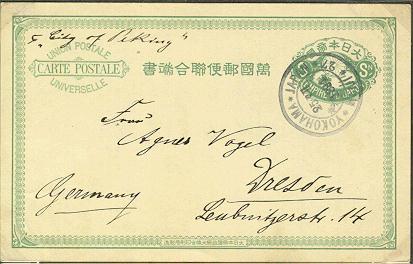 "City of Peking"
UNION POSTALE
CARTE POSTALE
UNIVERSELLE
書端合聯便郵國萬
大日本帝國
YOKOHAMA
Frau
Agnes Vogel
Dresden
Germany
Leubnitzerstr. 14